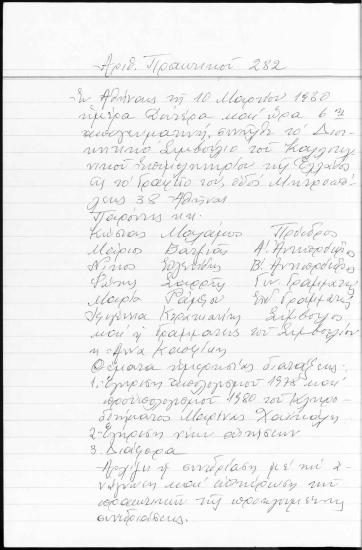 Αριθ. Πρακτικού 282
Εν Αθήναις τη 10 Μαρτίου 1980
ημέρα Δευτέρα και ώρα 6η
απογευματινή, συνήλθε το Διοι-
κητικό Συμβούλιο του Καλλιτεχ-
νικού Επιμελητηρίου της Ελλάδος
εις το Γραφείο του, οδός Μητροπό-
λεως 38 Αθήνας
Παρόντες κ.κ.
Κώστας Μαλάμος Πρόεδρος
Μάριος Βατζιάς Α' Αντιπρόεδρος
Νίκος Β' Αντιπρόεδρος
Φώτης Γεν. Γραμματεύς
Μαρία Γραμματεύς
Σύμβουλος
και η Γραμματεύς του Συμβουλίου
η Άννα
Θέματα ημερησίας διατάξεως:
1. Έγκρισις απολογισμού 1978 και
προϋπολογισμού 1980 του Κληρο-
δοτήματος Μαρίνας
2. Εγκρίσεις νέων αιτήσεων
3. Διάφορα
Αρχίζει η συνεδρίαση με την α-
νάγνωση και επικύρωση των
πρακτικών της προηγούμενης
συνεδριάσεως.